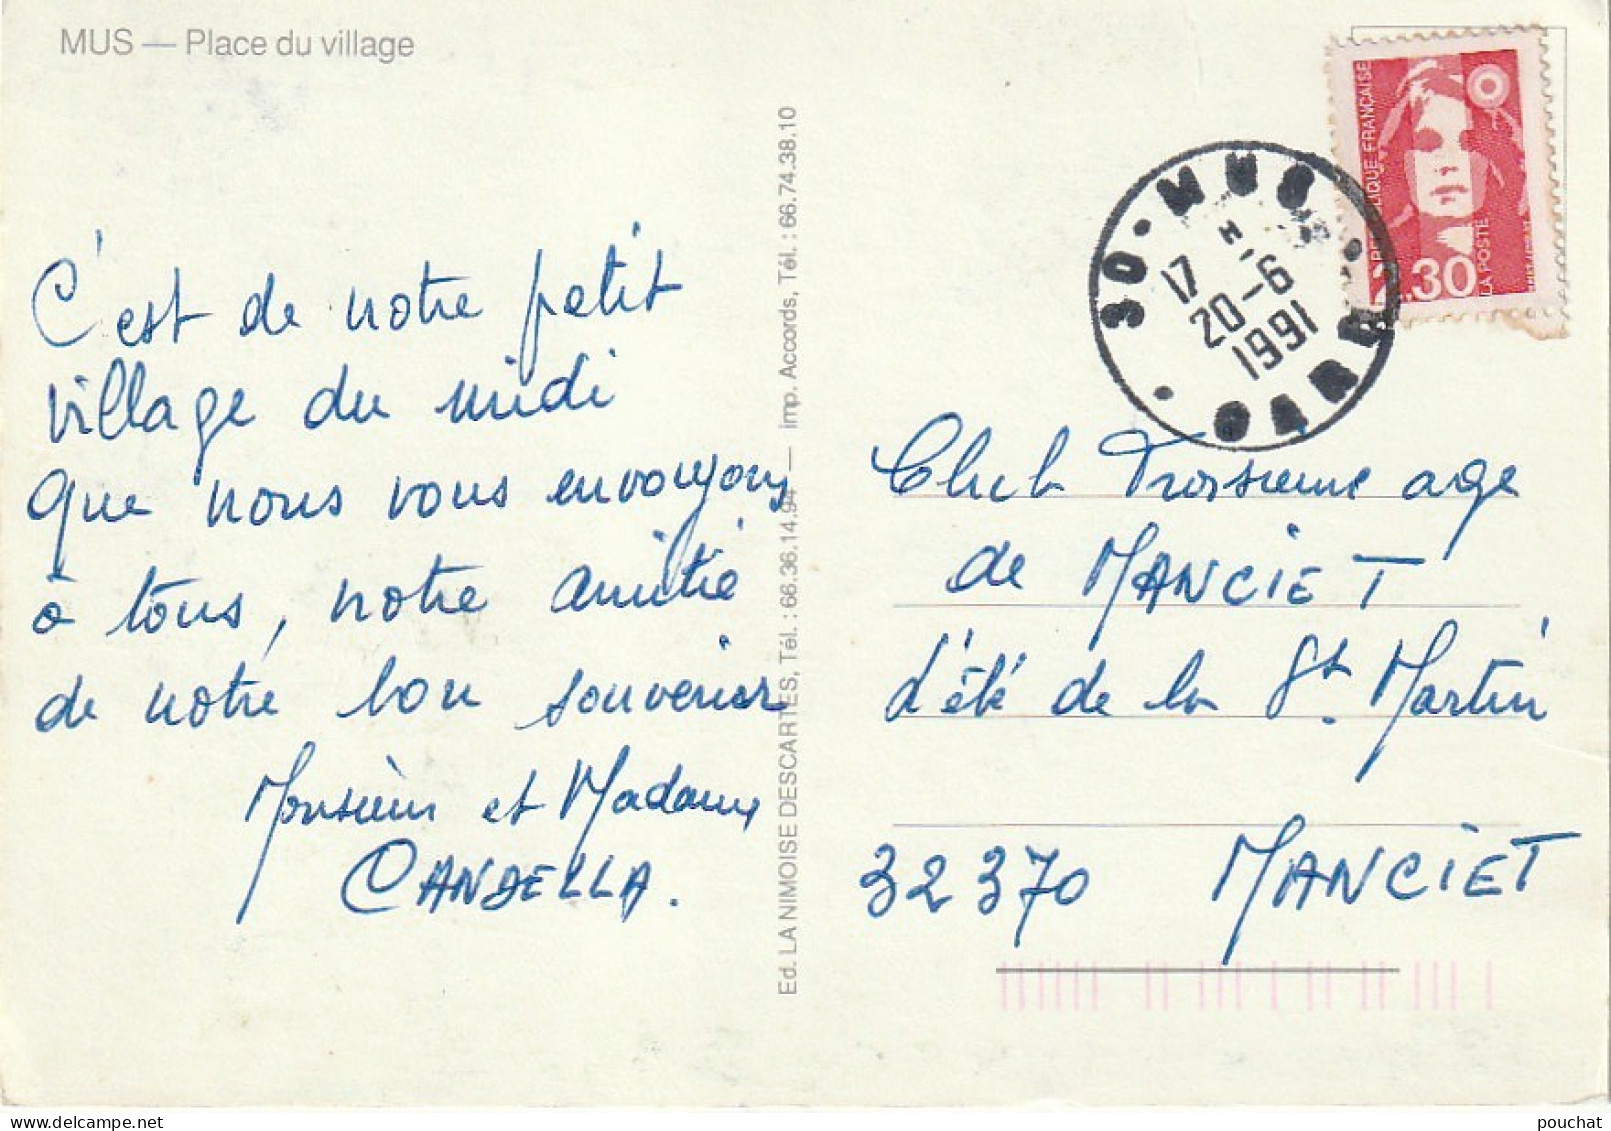 MUS — Place du village
C'est de notre petit
village du midi
que nous vous envoyons
à tous, notre amitié
de notre bon souvenir
Monsieur et Madame
CANDELLA.
Ed. LA NIMOISE DESCARTES, Tél. : 66.36.14.94 — imp. Accords, Tél. : 66.74.38.10
REPUBLIQUE FRANÇAISE
2.30
LA POSTE
30 • MUS •
17 H
20-6
1991
GARD •
Club Troisieme age
de MANCIET
d'été de la St. Martin
32370 MANCIET
pouchat